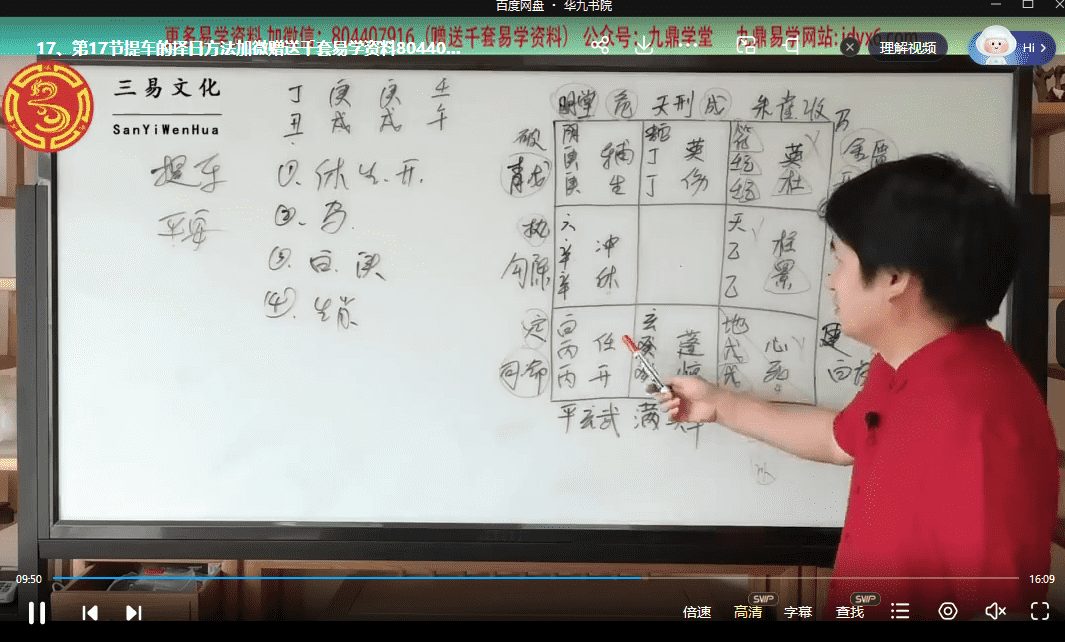 百度网盘 · 华九书院
更多易学资料 加微信：804407916 (赠送千套易学资料) 公众号：九鼎学堂 九鼎易学网站：
17、第17节提车的择日方法加微赠送千套易学资料80440...
理解视频
Hi
三易文化
SanYiWenHua
丁 庚 庚 壬
丑 戌 戌 午
提车
平安
①. 休 生 开.
②. 马.
③. 白. 庚
④. 生肖
明堂 危 天刑 成 朱雀 收
破
青龙
阴 庚 庚 辅 生
丁 丁 英 伤
英 杜
执
勾陈
六 辛 辛 冲 休
天 乙 乙 柱 景
定
司命
白 丙 丙 任 开
玄 蓬
地 戊 戊 心 死
建
平 玄武 满
09:50
16:09
倍速
高清
SVIP
字幕
查找
SVIP